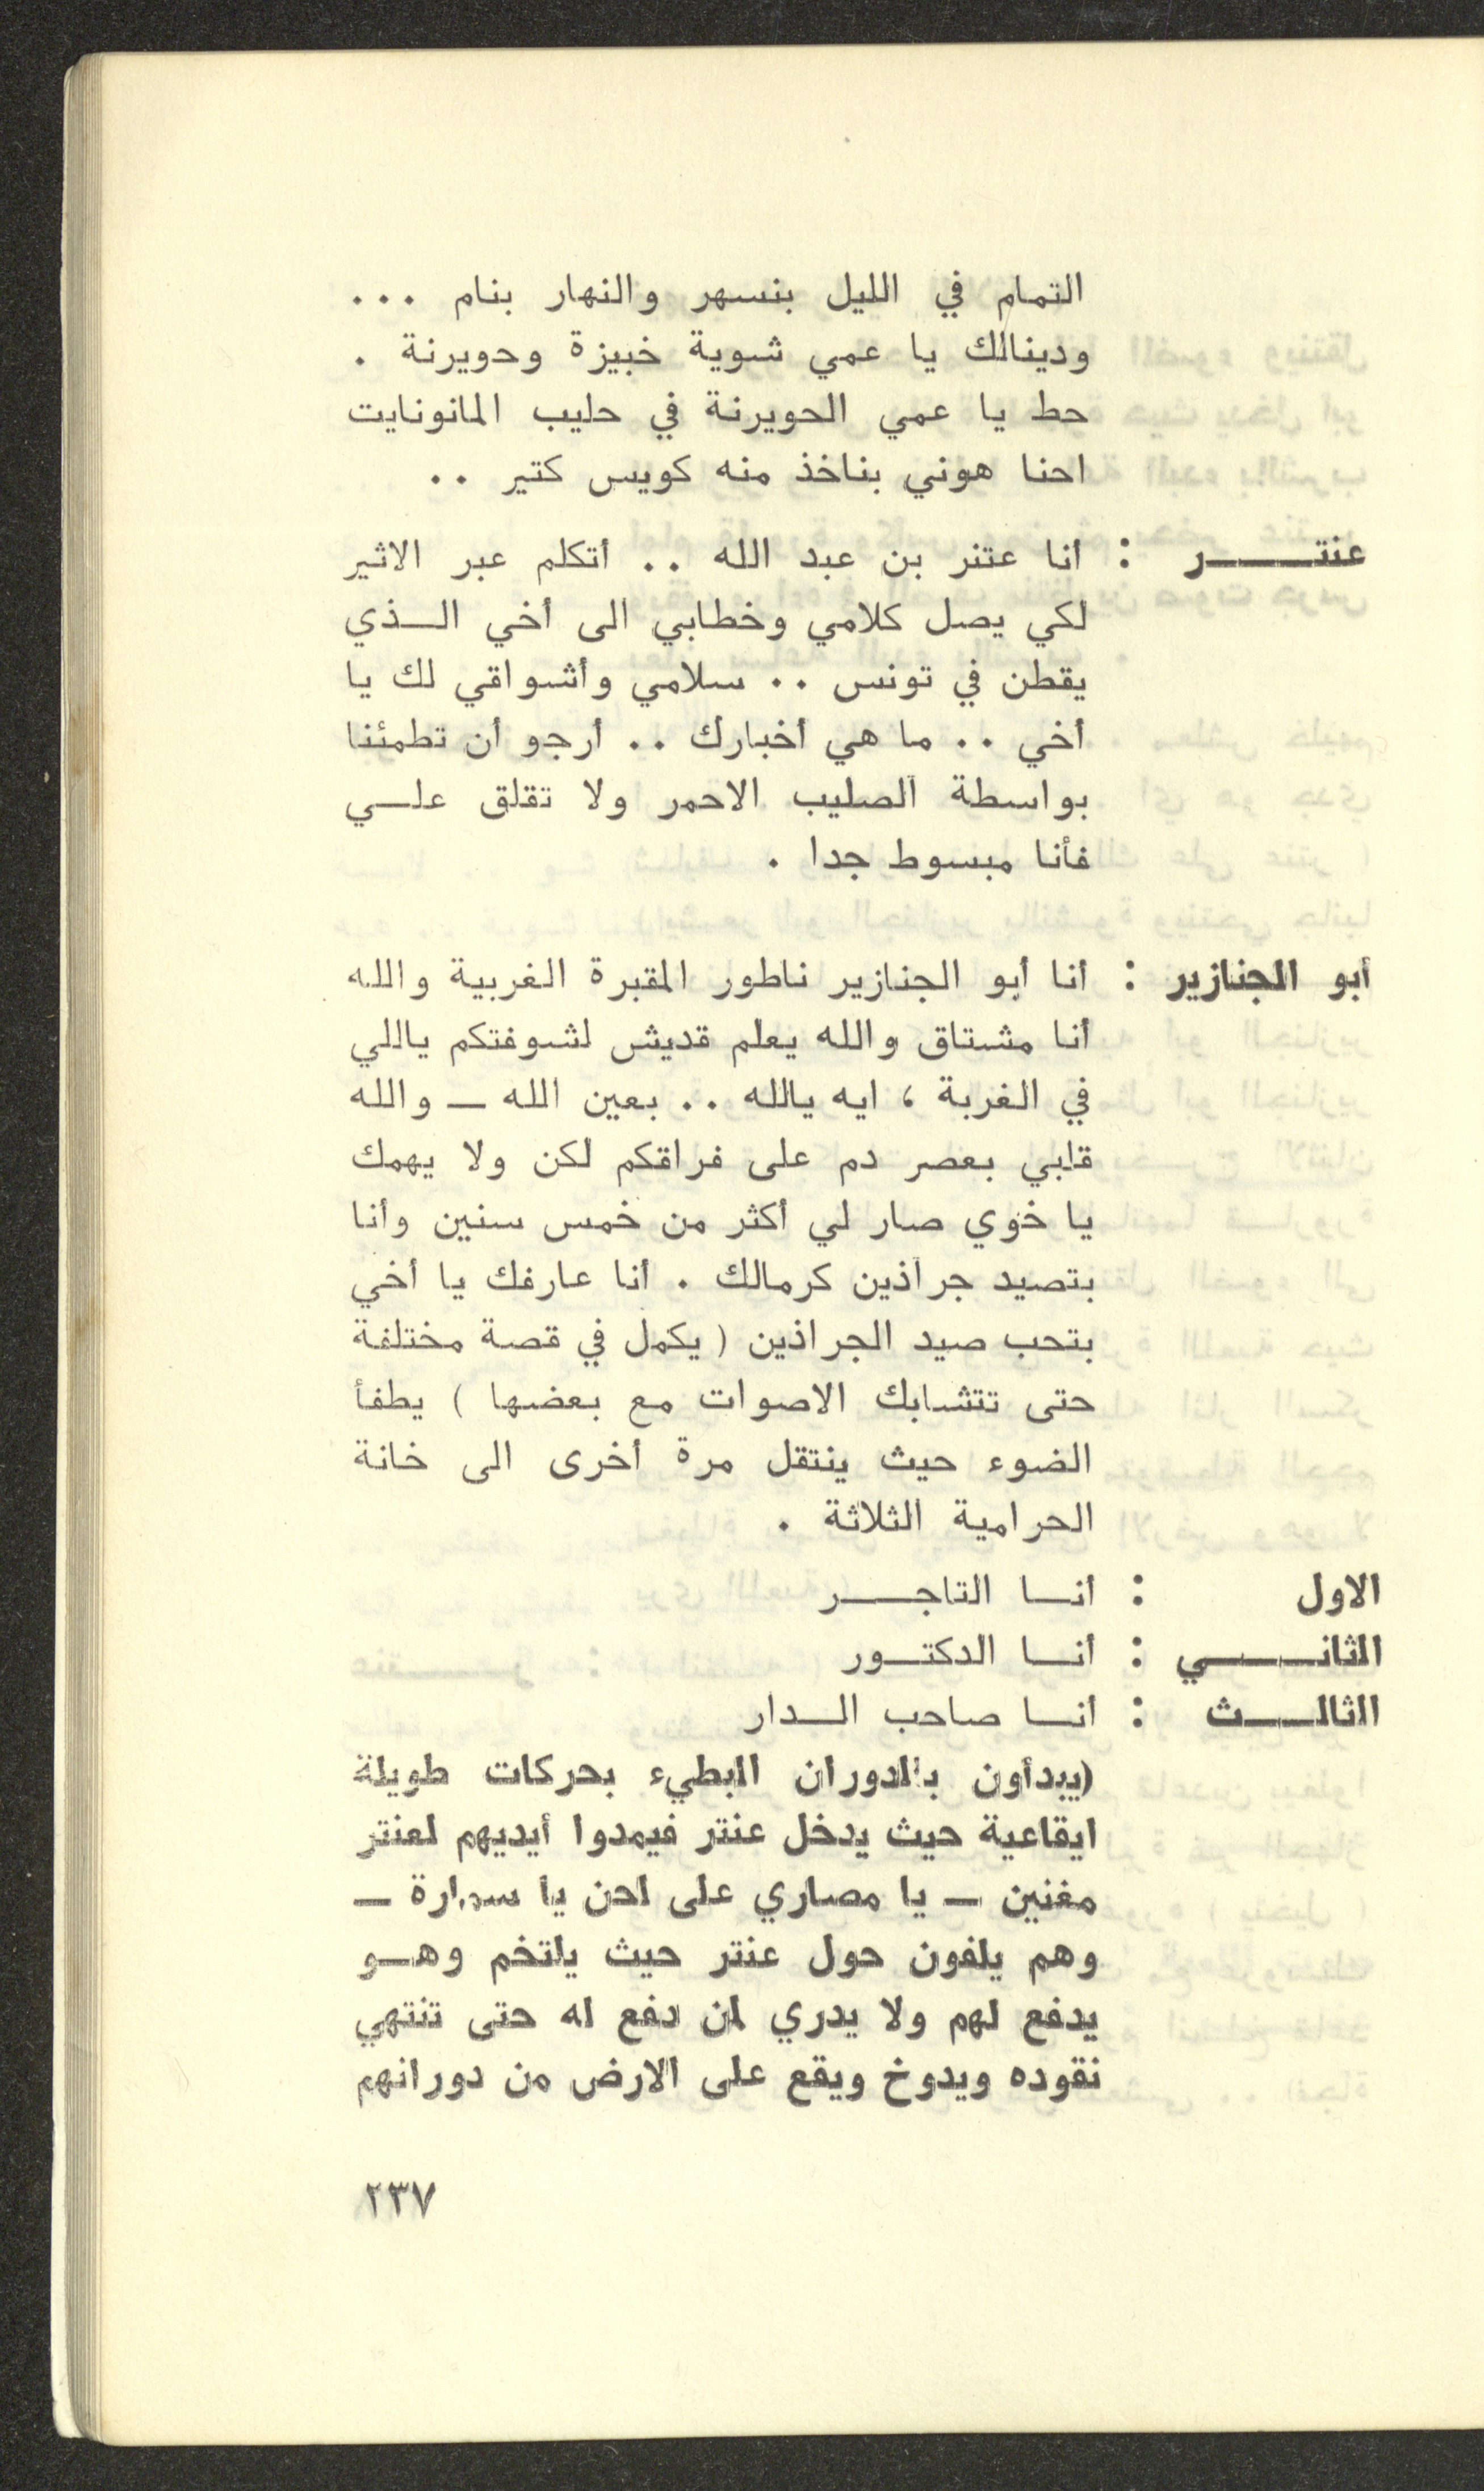 التمام في الليل بنسهر والنهار بنام ...
ودينالك يا عمي شوية خبيزة وحويرنة .
حط يا عمي الحويرنة في حليب المانونايت
احنا هوني بناخذ منه كويس كتير ..
عنتـــر : أنا عتنر بن عبد الله .. أتكلم عبر الاثير
لكي يصل كلامي وخطابي الى أخي الـذي
يقطن في تونس .. سلامي وأشواقي لك يا
أخي .. ما هي أخبارك .. أرجو أن تطمئننا
بواسطة الصليب الاحمر ولا تقلق علـي
فأنا مبسوط جدا .
أبو الجنازير : أنا أبو الجنازير ناطور المقبرة الغربية والله
أنا مشتاق والله يعلم قديش لشوفتكم ياللي
في الغربة ، ايه يالله .. بعين الله ـ والله
قلبي بعصر دم على فراقكم لكن ولا يهمك
يا خوي صار لي أكثر من خمس سنين وأنا
بتصيد جراذين كرمالك . أنا عارفك يا أخي
بتحب صيد الجراذين ( يكمل في قصة مختلفة
حتى تتشابك الاصوات مع بعضها ) يطفأ
الضوء حيث ينتقل مرة أخرى الى خانة
الحرامية الثلاثة .
الاول : أنـا التاجـــر
الثانـــي : أنـا الدكتـور
الثالـــث : أنـا صاحب الـدار
(يبدأون بالدوران البطيء بحركات طويلة
ايقاعية حيث يدخل عنتر فيمدوا أيديهم لعنتر
مغنين ـ يا مصاري على لحن يا سمارة ـ
وهم يلفون حول عنتر حيث يلتخم وهـو
يدفع لهم ولا يدري لمن دفع له حتى تنتهي
نقوده ويدوخ ويقع على الارض من دورانهم
٢٣٧